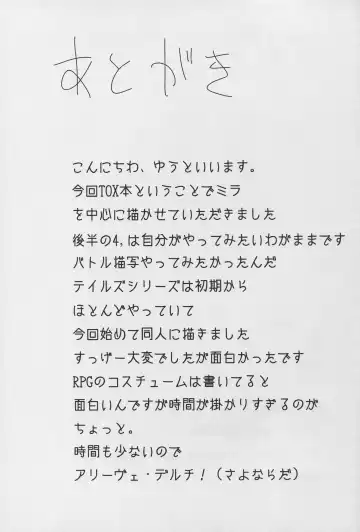 あとがき
こんにちわ、ゆうといいます。
今回TOX本ということでミラ
を中心に描かせていただきました
後半の4,は自分がやってみたいわがままです
バトル描写やってみたかったんだ
テイルズシリーズは初期から
ほとんどやっていて
今回始めて同人に描きました
すっげー大変でしたが面白かったです
RPGのコスチュームは書いてると
面白いんですが時間が掛かりすぎるのが
ちょっと。
時間も少ないので
アリーヴェ・デルチ！（さよならだ）